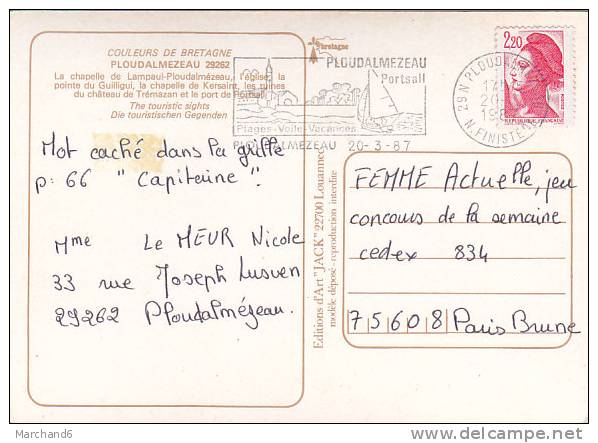 COULEURS DE BRETAGNE
PLOUDALMEZEAU 29262
La chapelle de Lampaul-Ploudalmézeau, l'église, la
pointe du Guilligui, la chapelle de Kersaint, les ruines
du château de Trémazan et le port de Portsall
The touristic sights
Die touristischen Gegenden
bretagne
PLOUDALMEZEAU
Portsall
Plages-Voile-Vacances
PLOUDALMEZEAU 20-3-87
29 N PLOUDALMEZEAU
N. FINISTERE
2,20
REPUBLIQUE FRANÇAISE
Mot caché dans la grille
p: 66 " Capitaine ".
Mme Le MEUR Nicole
33 rue Joseph Lusven
29262 Ploudalmézeau.
Editions d'Art "JACK" 22700 Louannec
modèle déposé - reproduction interdite
FEMME Actuelle, jeu
concours de la semaine
cedex 834
75608 Paris Brune
Marchand6
delcampe.net